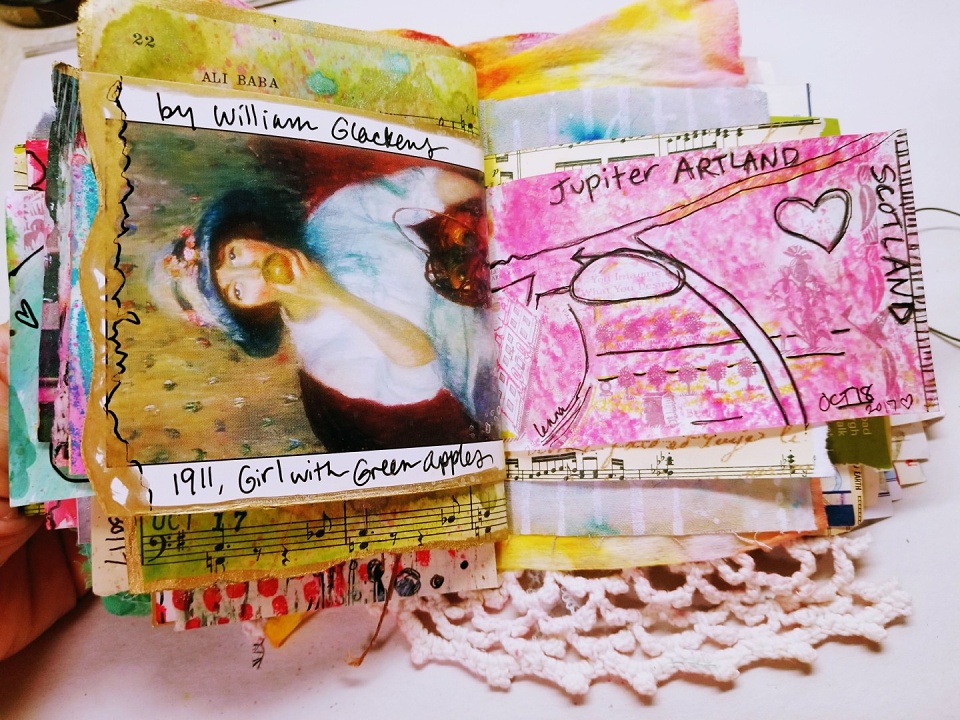 22
ALI BABA
by William Glackens
1911, Girl with Green apples
OCT 17
Jupiter ARTLAND
SCOTLAND
You Imagine
What You
OCT 18
2017